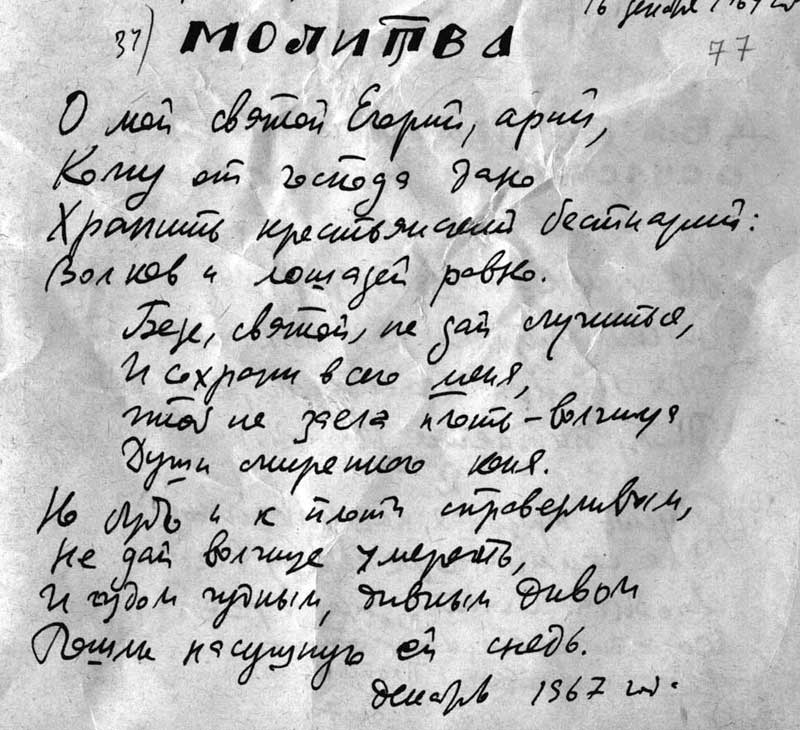 16 декабря 1967 год
31) МОЛИТВА
77
О мой святой Егорий, арий,
Кому от господа дано
Хранить крестьянский бестиарий:
Волков и лошадей равно.
Беде, святой, не дай случиться,
И сохрани всего меня,
Чтоб не заела плоть-волчица
Души смиренного коня.
Но будь и к плоти справедливым,
Не дай волчице умереть,
И чудом чудным, дивным дивом
Пошли насущную ей снедь.
декабрь 1967 год.